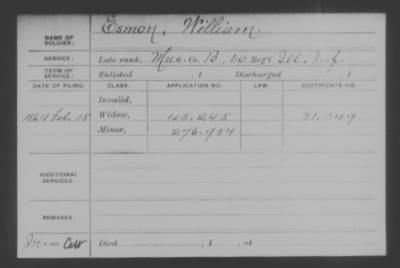 NAME OF SOLDIER: Esmon, William.
SERVICE: Late rank, Mus. Co. B, 60 Reg't Ill. Inf.
TERM OF SERVICE: Enlisted , 1 Discharged , 1
DATE OF FILING. CLASS. APPLICATION NO. LAW. CERTIFICATE NO.
Invalid,
1864 Feb. 15 Widow, 45.245 31.349
Minor, 276.954
ADDITIONAL SERVICES:
REMARKS:
Died , 1 , at